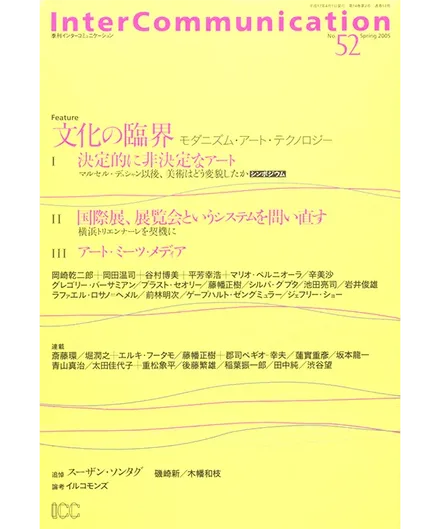 InterCommunication
季刊インターコミュニケーション
No. 52 Spring 2005
Feature
文化の臨界 モダニズム・アート・テクノロジー
I 決定的に非決定なアート
マルセル・デュシャン以後、美術はどう変貌したか シンポジウム
II 国際展、展覧会というシステムを問い直す
横浜トリエンナーレを契機に
III アート・ミーツ・メディア
岡崎乾二郎＋岡田温司＋谷村博美＋平芳幸浩／マリオ・ペルニオーラ／辛美沙
グレゴリー・バーサミアン／プラスト・セオリー／藤幡正樹／シルパ・グプタ／池田亮司／岩井俊雄
ラファエル・ロサノ＝ヘメル／前林明次／ゲープハルト・ゼングミュラー／ジェフリー・ショー
連載
斎藤環／堀潤之＋エルキ・フータモ／藤幡正樹＋郡司ペギオ-幸夫／蓮實重彦／坂本龍一
青山真治／太田佳代子＋重松象平／後藤繁雄／稲葉振一郎／田中純／渋谷望
追悼 スーザン・ソンタグ 磯崎新／木幡和枝
論考 イルコモンズ
ICC